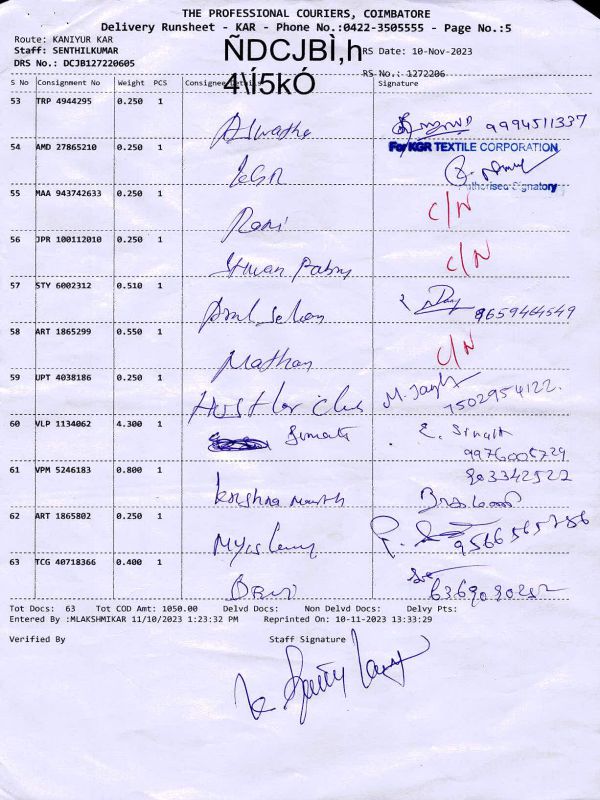 THE PROFESSIONAL COURIERS, COIMBATORE
Delivery Runsheet - KAR - Phone No.:0422-3505555 - Page No.:5
Route: KANIYUR KAR
Staff: SENTHILKUMAR
ÑDCJBÌ,h
RS Date: 10-Nov-2023
DRS No.: DCJB127220605
4\Í5kÓ
RS No.: 1272206
S No Consignment No Weight PCS Consignee Details Signature
53 TRP 4944295 0.250 1
Aswatha 9994511337
54 AMD 27865210 0.250 1
For KGR TEXTILE CORPORATION
KGR
Authorised Signatory
55 MAA 943742633 0.250 1
Rani C/N
56 JPR 100112010 0.250 1
C/N
57 STY 6002312 0.510 1
9659464549
58 ART 1865299 0.550 1
Mathan C/N
59 UPT 4038186 0.250 1
Hustler Club
7502954122.
60 VLP 1134062 4.300 1
9976005729
61 VPM 5246183 0.800 1
Krishna
62 ART 1865802 0.250 1
63 TCG 40718366 0.400 1
Tot Docs: 63 Tot COD Amt: 1050.00 Delvd Docs: Non Delvd Docs: Delvy Pts:
Entered By :MLAKSHMIKAR 11/10/2023 1:23:32 PM Reprinted On: 10-11-2023 13:33:29
Verified By Staff Signature